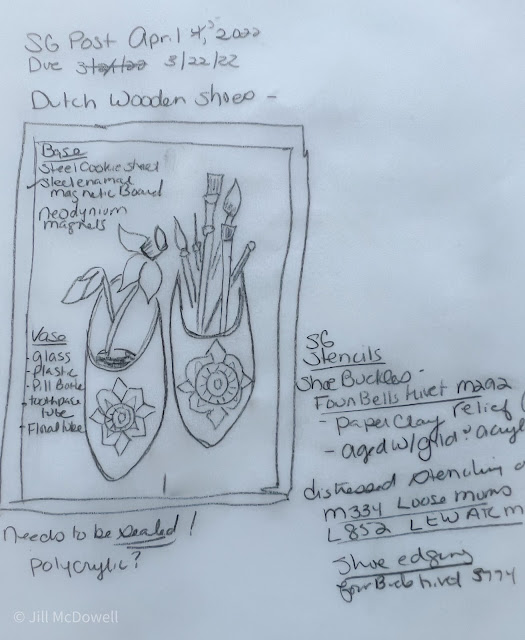 SG Post April 4,5 2022
Due 3/21/22 3/22/22
Dutch Wooden Shoes -
Base
Steel Cookie Sheet
Steel enamal
magnetic Board
neodynium
magnets
Vase
- glass
- Plastic
- Pill Bottle
- toothpaste
tube
- Floral tube
SG
Stencils
Shoe Buckles -
Four Bells Rivet M292
- Paper Clay relief
- aged w/ gold? acryl
distressed stenciling
M334 Loose mums
L852 LEW ATC M
Shoe edging
needs to be sealed!
polycrylic?
© Jill McDowell